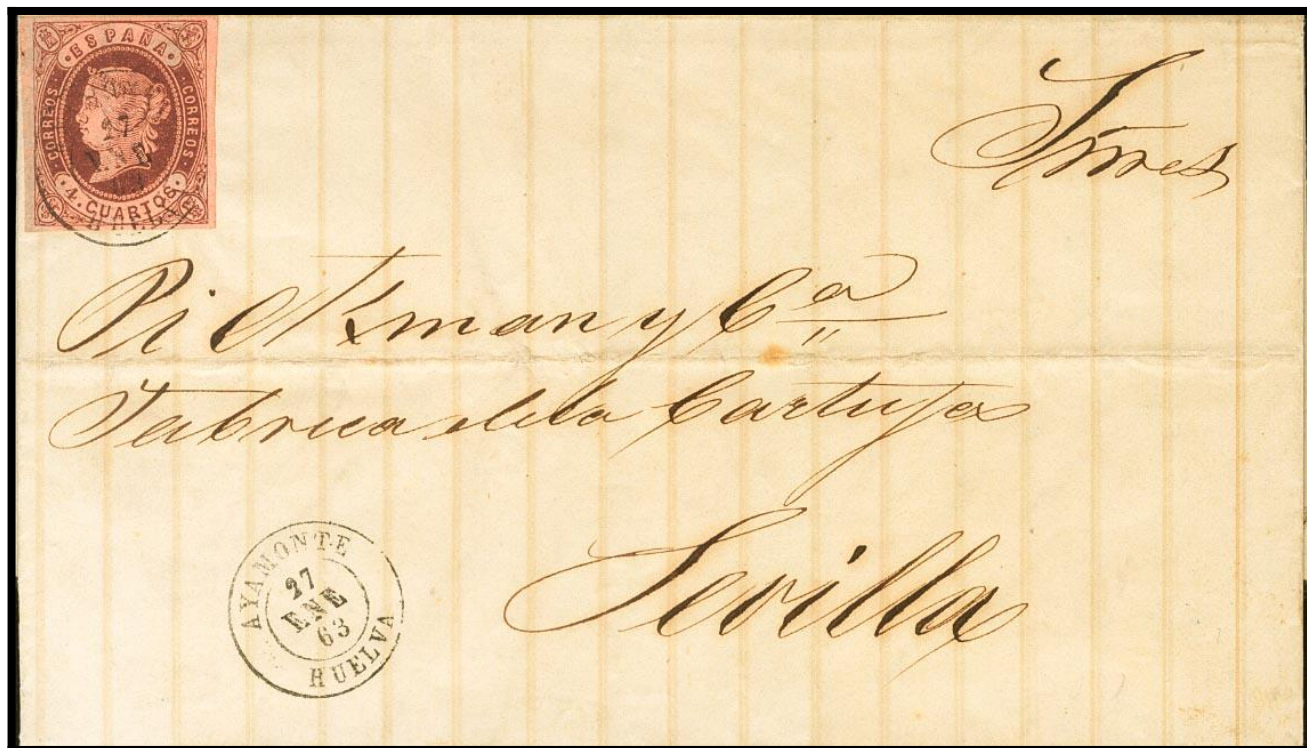 ESPAÑA
CORREOS
CORREOS
4. CUARTOS.
27
ENE
HUELVA
Sñres
Pickman y Cª
Fabrica de la Cartuja
Sevilla
AYAMONTE
27
ENE
63
HUELVA